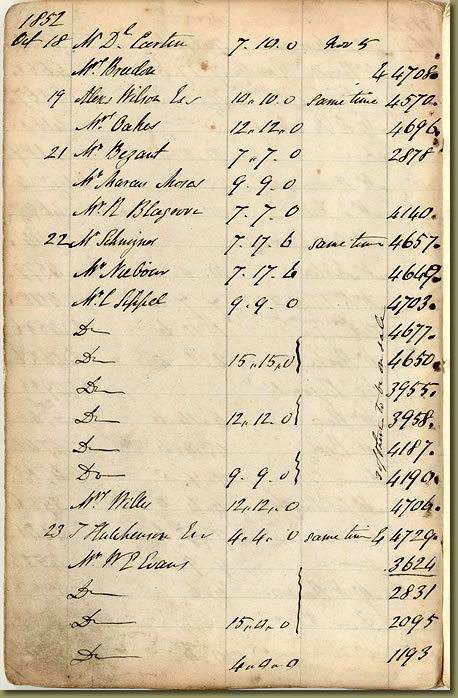 1852
Oct 18 Mr De Curtin 7.10.0 Nov 5
Mrs Breedon 4 4708
19 Alexr Wilson Esr 10.10.0 same time 4570
Mrs Oakes 12.12.0 4696
21 Mr Bezant 7.7.0 2878
Mr Marcus Moses 9.9.0
Mr R Blagrove 7.7.0 4140
22 Mr Schnizner 7.17.6 same time 4657
Mr Niebour 7.17.6 4649
Mr C Sippel 9.9.0 4703
Do 4677
Do 15.15.0 4650
Do 3955
Do 12.12.0 3958
Do 4187
Do 9.9.0 4190
to be on sale
Mrs Willes 12.12.0 4706
23 J Hutchenson Esr 4.4.0 same time 4 4729
Mr W P Evans 3624
Do 2831
Do 15.0.0 2095
Do 4.0.0 1193